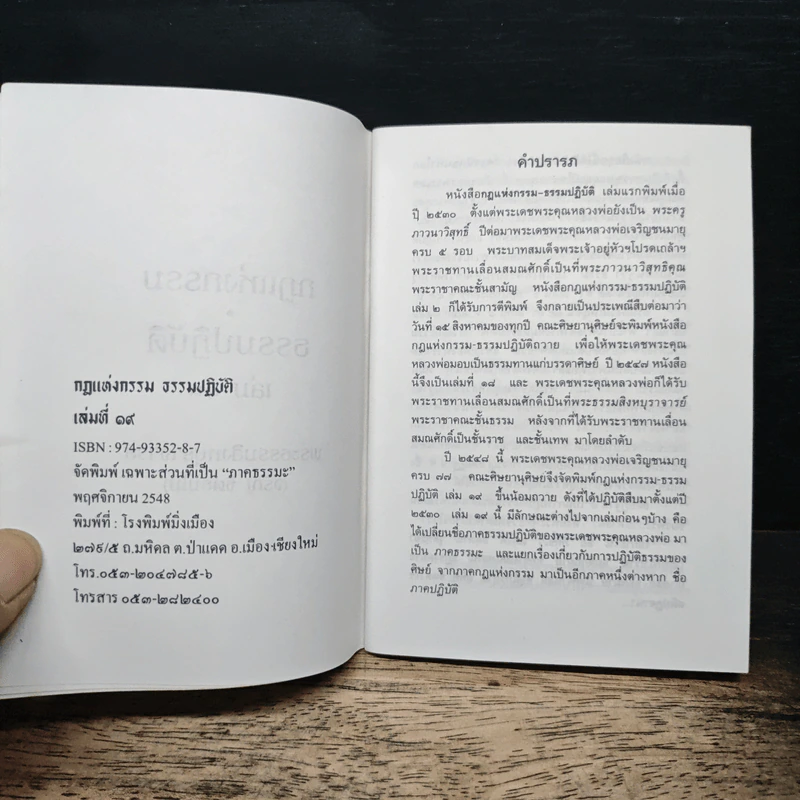 กฎแห่งกรรม ธรรมปฏิบัติ
เล่มที่ ๑๙
ISBN : 974-93352-8-7
จัดพิมพ์ เฉพาะส่วนที่เป็น “ภาคธรรมะ”
พฤศจิกายน 2548
พิมพ์ที่ : โรงพิมพ์มิ่งเมือง
๒๗๙/๕ ถ.มหิดล ต.ป่าแดด อ.เมือง-เชียงใหม่
โทร.๐๕๓-๒๐๔๗๘๕-๖
โทรสาร ๐๕๓-๒๘๒๔๐๐
คำปรารภ
หนังสือกฎแห่งกรรม-ธรรมปฏิบัติ เล่มแรกพิมพ์เมื่อ
ปี ๒๕๓๐ ตั้งแต่พระเดชพระคุณหลวงพ่อยังเป็น พระครู
ภาวนาวิสุทธิ์ ปีต่อมาพระเดชพระคุณหลวงพ่อเจริญชนมายุ
ครบ ๕ รอบ พระบาทสมเด็จพระเจ้าอยู่หัวฯโปรดเกล้าฯ
พระราชทานเลื่อนสมณศักดิ์เป็นที่พระภาวนาวิสุทธิคุณ
พระราชาคณะชั้นสามัญ หนังสือกฎแห่งกรรม-ธรรมปฏิบัติ
เล่ม ๒ ก็ได้รับการตีพิมพ์ จึงกลายเป็นประเพณีสืบต่อมาว่า
วันที่ ๑๕ สิงหาคมของทุกปี คณะศิษยานุศิษย์จะพิมพ์หนังสือ
กฎแห่งกรรม-ธรรมปฏิบัติถวาย เพื่อให้พระเดชพระคุณ
หลวงพ่อมอบเป็นธรรมทานแก่บรรดาศิษย์ ปี ๒๕๔๗ หนังสือ
นี้จึงเป็นเล่มที่ ๑๘ และ พระเดชพระคุณหลวงพ่อก็ได้รับ
พระราชทานเลื่อนสมณศักดิ์เป็นที่พระธรรมสิงหบุราจารย์
พระราชาคณะชั้นธรรม หลังจากที่ได้รับพระราชทานเลื่อน
สมณศักดิ์เป็นชั้นราช และชั้นเทพ มาโดยลำดับ
ปี ๒๕๔๘ นี้ พระเดชพระคุณหลวงพ่อเจริญชนมายุ
ครบ ๗๗ คณะศิษยานุศิษย์จึงจัดพิมพ์กฎแห่งกรรม-ธรรม
ปฏิบัติ เล่ม ๑๙ ขึ้นน้อมถวาย ดังที่ได้ปฏิบัติสืบมาตั้งแต่ปี
๒๕๓๐ เล่ม ๑๙ นี้ มีลักษณะต่างไปจากเล่มก่อนๆบ้าง คือ
ได้เปลี่ยนชื่อภาคธรรมปฏิบัติของพระเดชพระคุณหลวงพ่อ มา
เป็น ภาคธรรมะ และแยกเรื่องเกี่ยวกับการปฏิบัติธรรมของ
ศิษย์ จากภาคกฎแห่งกรรม มาเป็นอีกภาคหนึ่งต่างหาก ชื่อ
ภาคปฏิบัติ